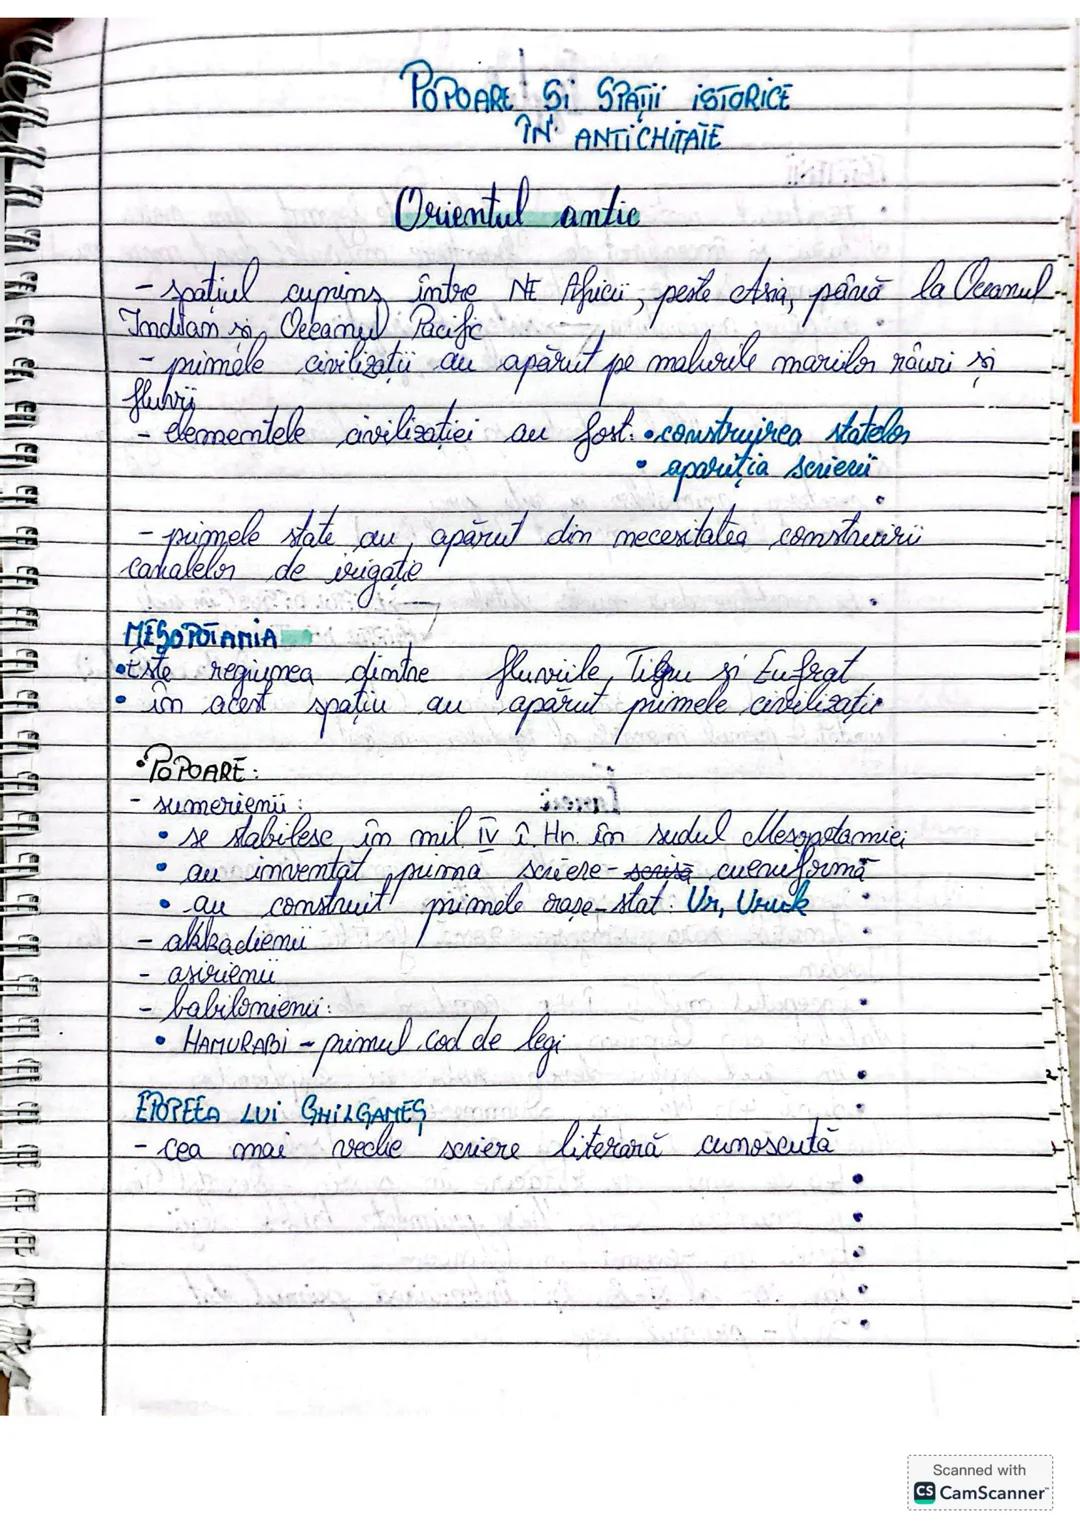 POPOARE Și SPAȚII iSTORICE
ÎN ANTiCHiTATE
Orientul antic
- spațiul cuprins între NE Africii, peste Asia, până la Oceanul
Indian și Oceanul Pacific
- primele civilizații au apărut pe malurile marilor râuri și
fluvii
- elementele civilizației au fost: • construirea statelor
• apariția scrierii
- primele state au apărut din necesitatea construirii
canalelor de irigație
MESOPOTAMIA
• Este regiunea dintre fluviile Tigru și Eufrat
• în acest spațiu au apărut primele civilizații
• POPOARE:
- sumerienii:
• se stabilesc în mil. IV î. Hr. în sudul Mesopotamiei
• au inventat prima scriere - cuneiformă
• au construit primele orașe-stat: Ur, Uruk
- akkadienii
- asirienii
- babilonienii:
• HAMURABi - primul cod de legi
EPOPEEA LUi GHiLGAMEȘ
- cea mai veche scriere literară cunoscută
Scanned with
CS CamScanner